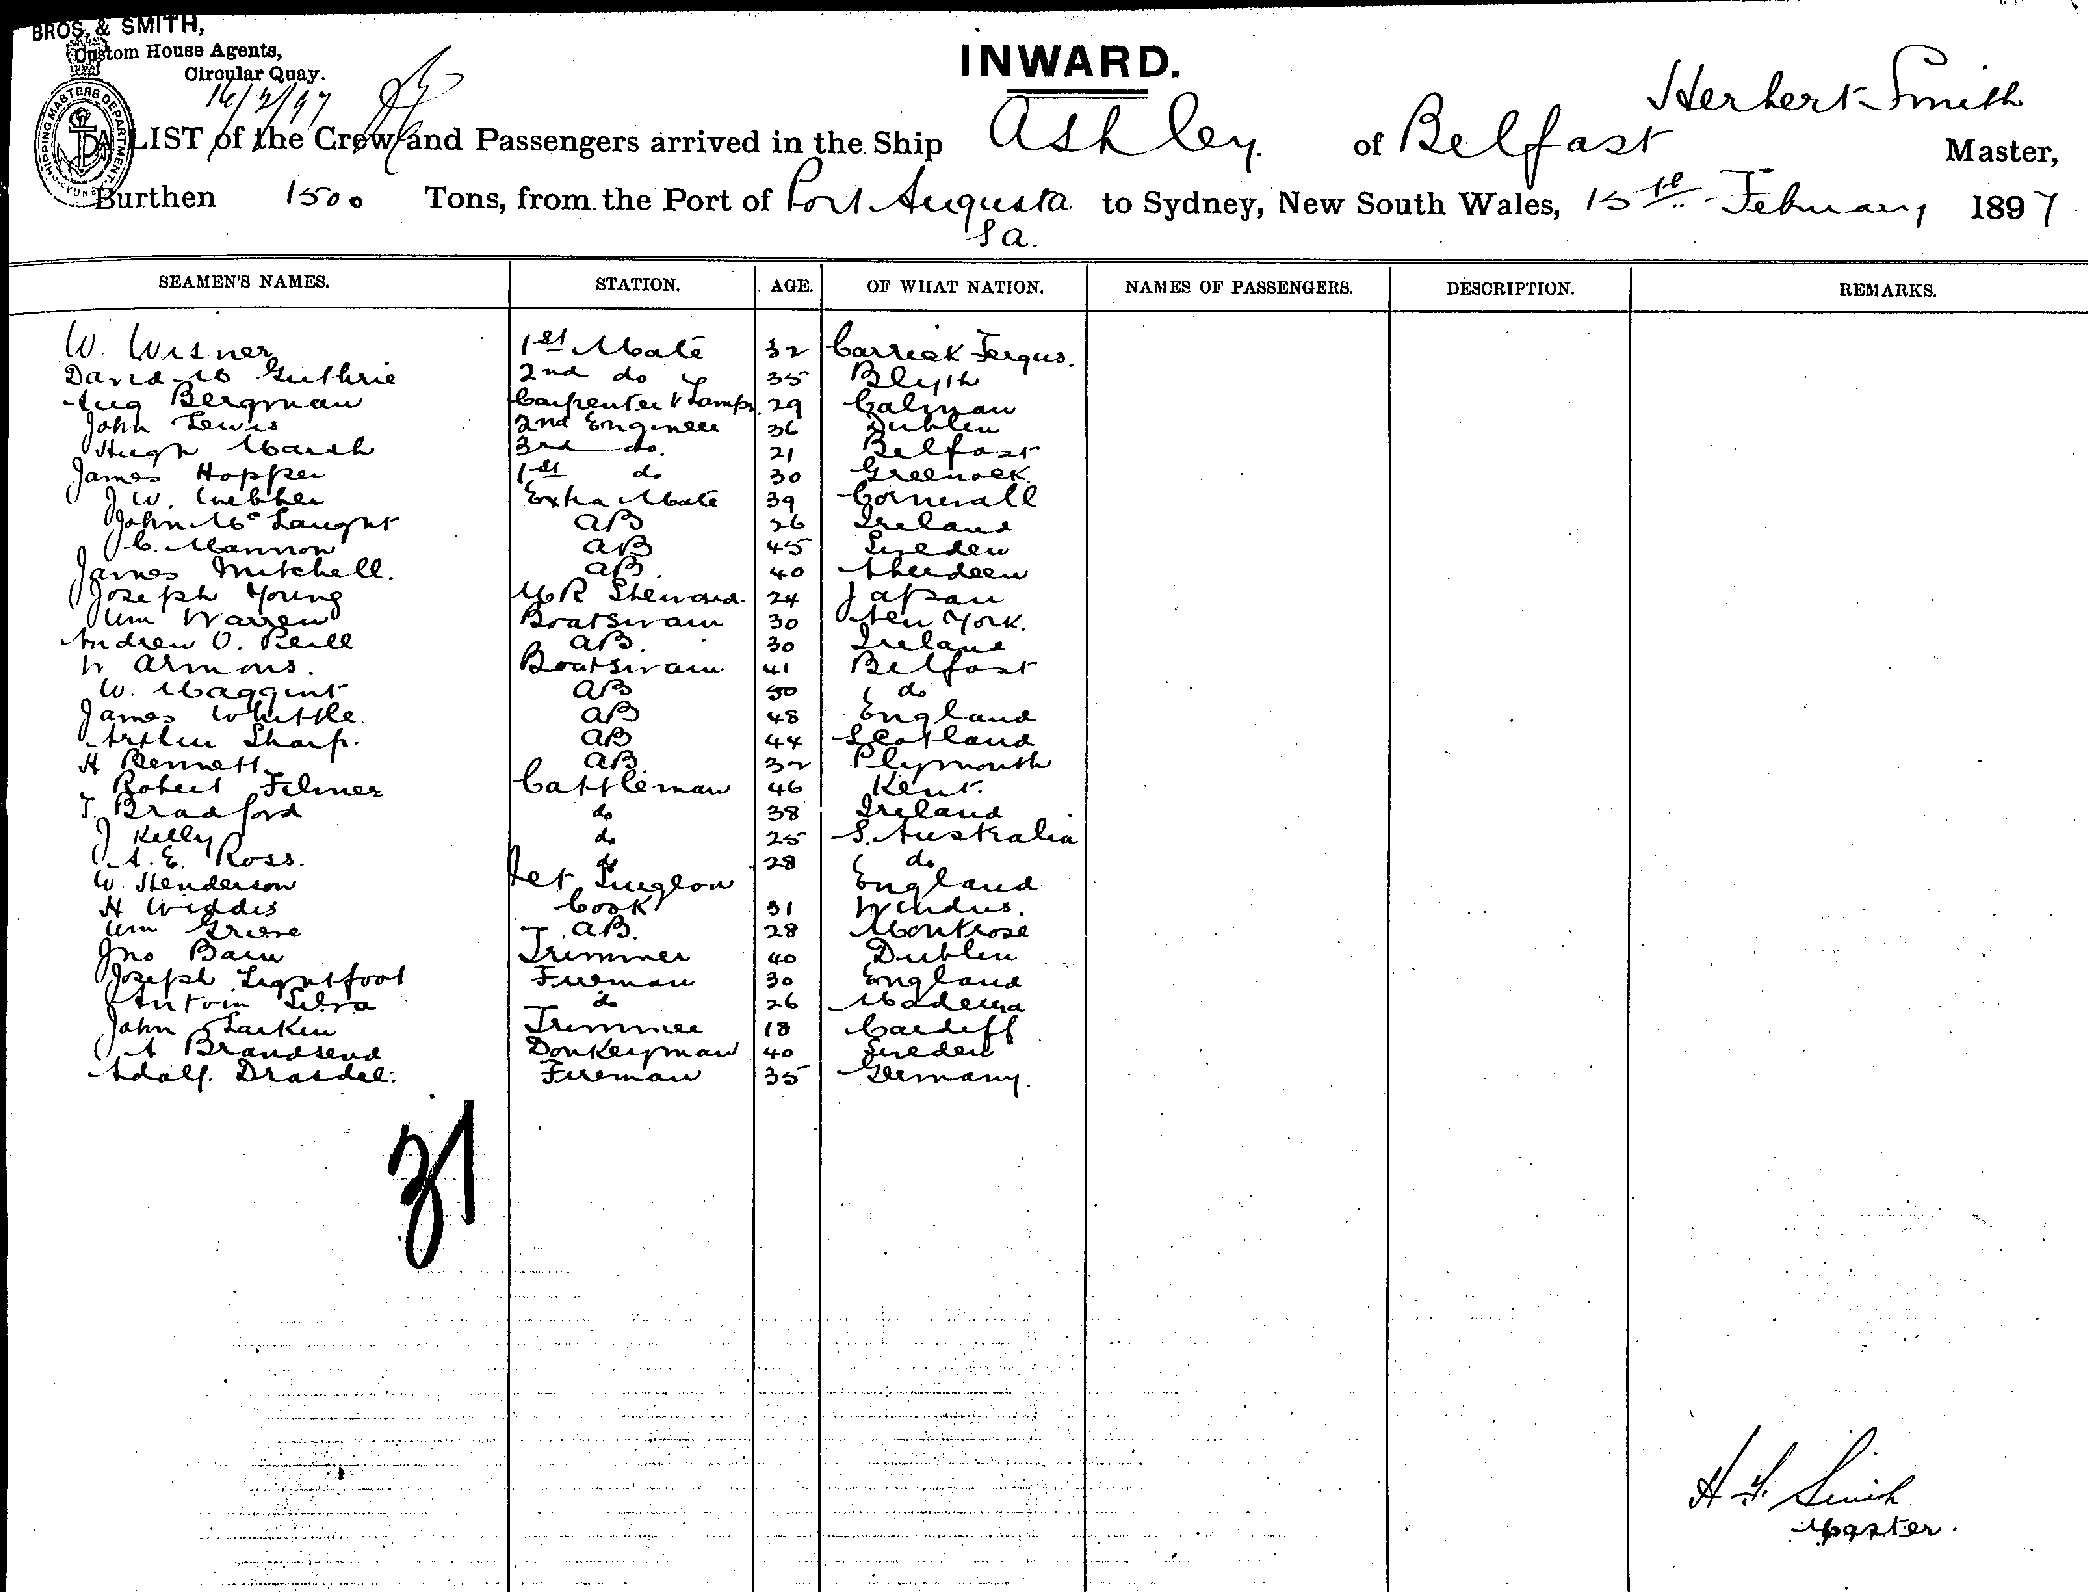 BROS. & SMITH,
Custom House Agents,
Circular Quay.
16/2/97
INWARD.
Herbert Smith
A LIST of the Crew and Passengers arrived in the Ship Ashley of Belfast Master,
Burthen 1500 Tons, from the Port of Port Augusta to Sydney, New South Wales, 15th February 1897
S a.
SEAMEN'S NAMES. STATION. AGE. OF WHAT NATION. NAMES OF PASSENGERS. DESCRIPTION. REMARKS.
W. Wisner 1st Mate 32 Carrick Fergus.
David Guthrie 2nd do 35 Blyth
Aug Bergman Carpenter & Lamps 29 Calmau
John Lewis 2nd Engineer 36 Dublin
Hugh Marsh 3rd do. 21 Belfast
James Hopper 1st do 30 Greenock
J W. Webber Extra Mate 39 Cornwall
John Mc Laught AB 26 Ireland
C. Mannon AB 45 Sweden
James Mitchell. AB. 40 Aberdeen
Joseph Young M R Steward 24 Japan
Wm Warren Boatswain 30 New York.
Andrew O. Reill AB. 30 Ireland
W Armons. Boatswain 41 Belfast
W. Maggint AB 50 do
James Whittle. AB 48 England
Arthur Sharp. AB 44 Scotland
H Bennett AB. 32 Plymouth
Robert Filmer Cattleman 46 Kent.
T. Bradford do 38 Ireland
J Kelly do 25 S. Australia
A. E. Ross. do 28 do
W. Henderson Vet Surgeon England
H Widdis Cook 31 W Indies.
Wm Grieve AB. 28 Montrose
Jno Bain Trimmer 40 Dublin
Joseph Lightfoot Fireman 30 England
Antoin Silva do 26 Madeira
John Larkin Trimmer 18 Cardiff
A Brandsend Donkeyman 40 Sweden
Adolf. Drasdel. Fireman 35 Germany.
31
H F. Smith
Master.